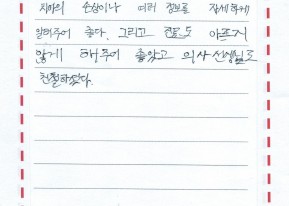 치아의 손상이나 여러 정보를 자세하게
알려주어 좋다. 그리고 진료도 아프지
않게 해주어 좋았고 의사선생님도
친절하셨다.